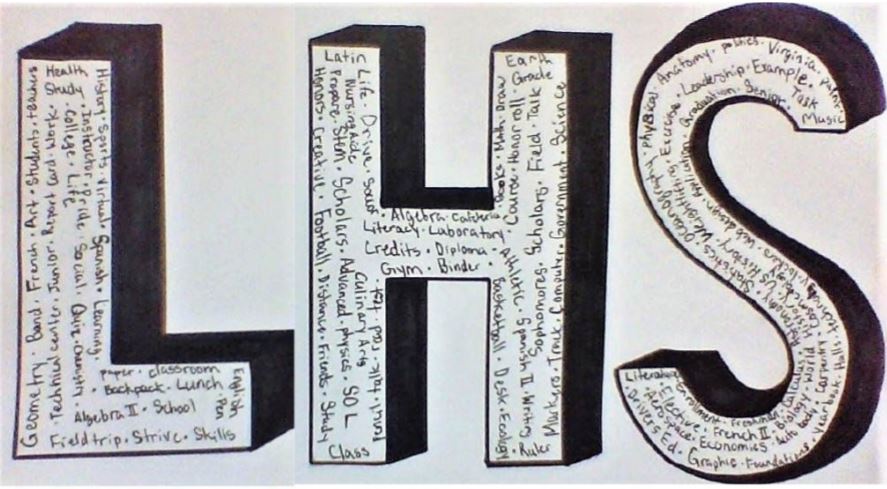 LHS
Geometry · Band · French · Art · Students · teachers
Technical center · Junior · Report Card · Work ·
Health
Study
College · Life
Instructor
Social · Quiz · Chemistry
History · Sports · Virtual · Spanish · Learning
paper · classroom
Backpack · Lunch
English
Pen
Algebra II · School
Field trip · Strive · Skills
Latin
Honors · Creative · Football · Distance · Friends · Study
Prepare · Stem · Scholars · Advanced · physics · SOL
Nursing Aide
Life · Drive · Soccer
Culinary Arts
Class
Algebra · Cafeteria
Literacy · Laboratory
Credits · Diploma
Gym · Binder
Earth
Grade
Books · Math · Draw
Course · Honor roll
Scholars · Field · Talk
Basketball · Desk · Ecology
Athletic · Spanish II
Sophomores
Markers · Track · Computer · Government · Science
Ruler
Physical · Anatomy · politics · Virginia
Exercise · Leadership · Example · Task
Graduation · Senior
Music
Oceanography · Weightlifting · Application
Web design
Statistics
US History
Astronomy
Literature
Enrollment · Freshman · Calculus
Elective · French II · Biology · World
Aerospace · Economics
Drivers Ed. · Graphic · Foundations · Year book · Halls
Carpentry